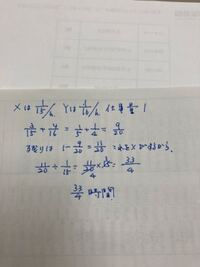 Xは 1/15/h Yは 1/16/h 仕事量 1
3/15 + 4/16 = 1/5 + 1/4 = 9/20
残りは 1 - 9/20 = 11/20 これをXが行うから、
11/20 ÷ 1/15 = 11/20 × 15 = 33/4
33/4 時間